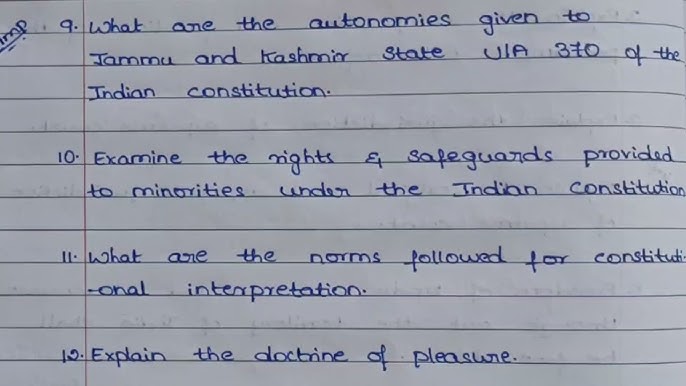 imp 9. What are the autonomies given to
Jammu and Kashmir State U/A 370 of the
Indian constitution.
10. Examine the rights & safeguards provided
to minorities under the Indian Constitution
11. What are the norms followed for constituti-
-onal interpretation.
12. Explain the doctrine of pleasure.